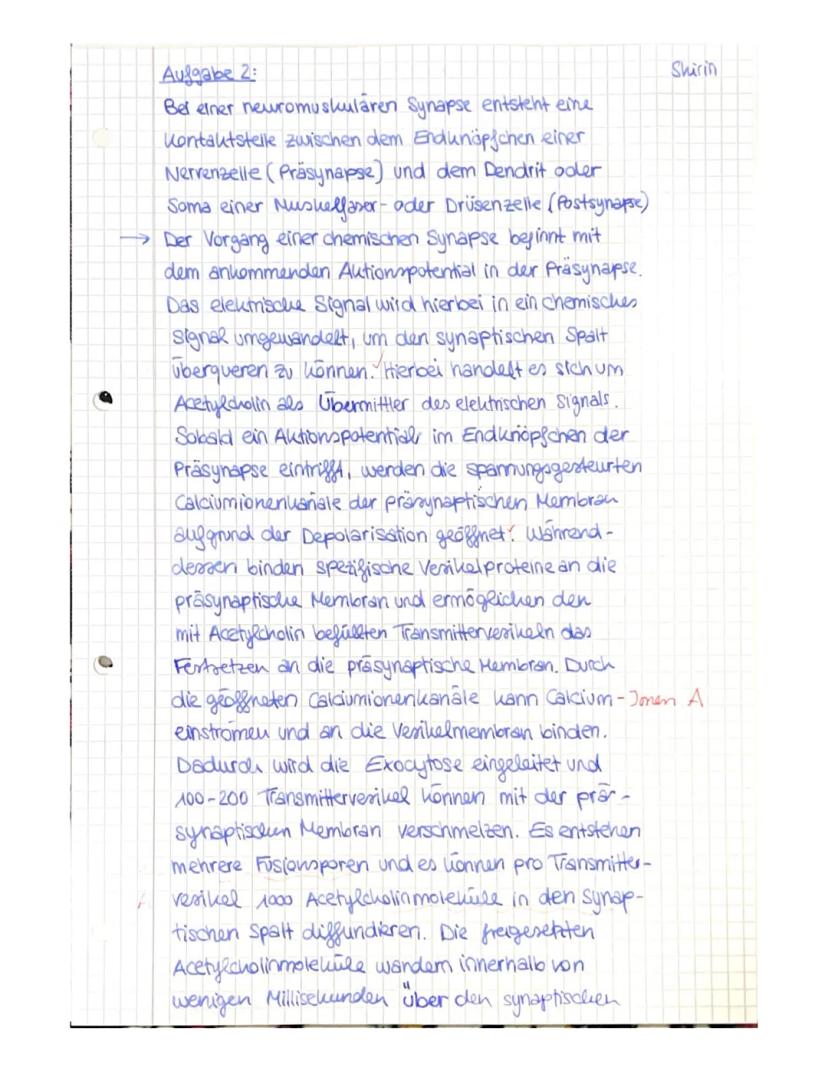 Aufgabe 2:
Shirin
Bei einer neuromuskulären Synapse entsteht eine
Kontaktstelle zwischen dem Endknöpfchen einer
Nervenzelle (Präsynapse) und dem Dendrit oder
Soma einer Muskelfaser- oder Drüsenzelle (Postsynapse)
→ Der Vorgang einer chemischen Synapse beginnt mit
dem ankommenden Aktionspotential in der Präsynapse.
Das elektrische Signal wird hierbei in ein chemisches
Signal umgewandelt, um den synaptischen Spalt
überqueren zu können. Hierbei handelt es sich um
Acetylcholin als Übermittler des elektrischen Signals.
Sobald ein Aktionspotential im Endknöpfchen der
Präsynapse eintrifft, werden die spannungsgesteurten
Calciumionenkanäle der präsynaptischen Membran
aufgrund der Depolarisation geöffnet. Während-
dessen binden spezifische Vesikelproteine an die
präsynaptische Membran und ermöglichen den
mit Acetylcholin befüllten Transmittervesikeln das
Festsetzen an die präsynaptische Membran. Durch
die geöffneten Calciumionenkanäle kann Calcium-Ionen A
einströmen und an die Vesikelmembran binden.
Dadurch wird die Exocytose eingeleitet und
100-200 Transmittervesikel können mit der prä-
synaptischen Membran verschmelzen. Es entstehen
mehrere Fusionsporen und es können pro Transmitter-
vesikel 1000 Acetylcholinmoleküle in den synap-
tischen Spalt diffundieren. Die freigesetzten
Acetylcholinmoleküle wandern innerhalb von
wenigen Millisekunden über den synaptischen